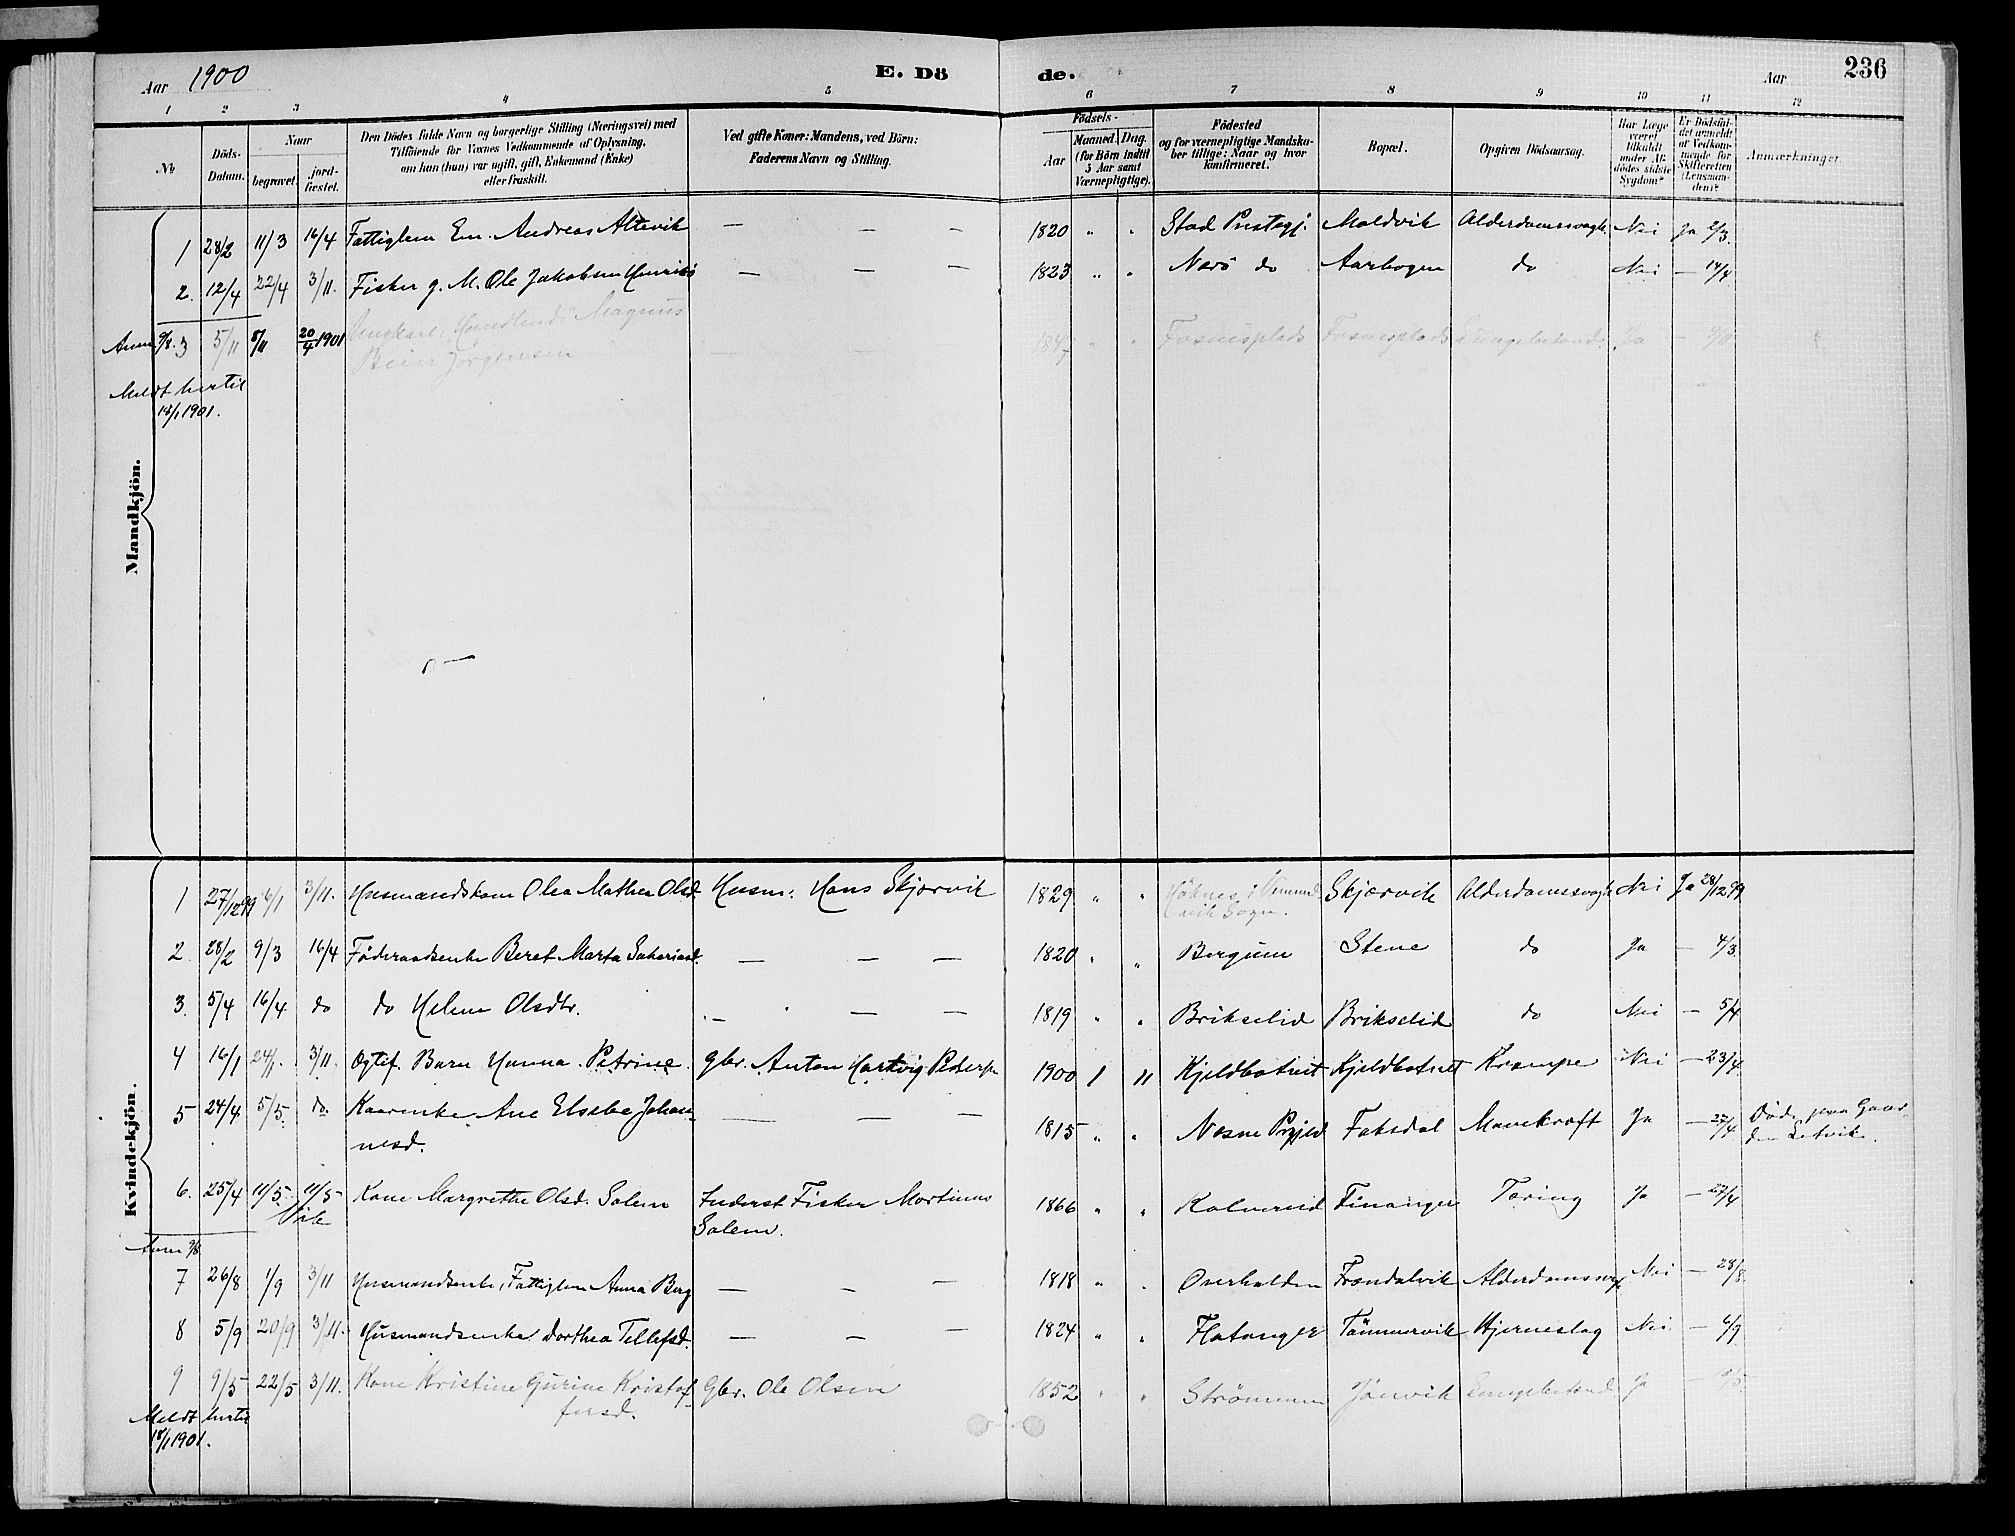 Aar 1900 E. Dö de. Aar 236
1 2 3 4 5 6 7 8 9 10 11 12
No. Döds-Datum. Naar begravet. jord-fæstet. Den Dödes fulde Navn og borgerlige Stilling (Næringsvei) med Tilföiende for Voxnes Vedkommende af Oplysning, om han (hun) var ugift, gift, Enkemand (Enke) eller fraskilt. Ved gifte Koner: Mandens, ved Börn: Faderens Navn og Stilling. Födsels- Aar Maaned. Dag. (for Börn indtil 5 Aar samt Værnepligtige). Födested og for værnepligtige Mandska-ber tillige: Naar og hvor konfirmeret. Bopæl. Opgiven Dödsaarsag. Har Læge været tilkaldt under Af-dödes sidste Sygdom? Er Dödsfal-det anmeldt af Vedkom-mende for Skifteretten (Lensman-den)? Anmærkninger.
Mandkjön.
1 28/2 11/3 16/4 Fattiglem Em. Andreas Altevik — — — 1820 " " Stad Prestegj. Moldvik Alderdomssvagh. Nei Ja 2/3.
2. 12/4 22/4 3/11. Fisker g. M. Ole Jakobsen Henriksö — — — 1823 " " Nærö do Aarbogen do Nei — 14/4
Anm. 9/8. 3 5/11 8/11 20/4 1901 Ungkarl, Handlende Magnus
Beier Jörgensen — — — 1847 " " Fosnesplads Fosnesplads Lungebetænd. Ja —
Meldt hertil
18/1 1901.
Kvindekjön.
1 27/12 99 6/1 3/11. Husmandskone Olea Mathea Olsd. Husm: Hans Skjærvik 1829 " " Höknes i Vemund-
vik Sogn. Skjærvik Alderdomssvagh Nei Ja 28/12 99
2. 28/2 9/3 16/4 Föderaadsenke Beret Marta Sakariasd. — — — 1820 " " Bergum Stene do Ja — 4/3.
3. 5/4 16/4 do do Helene Olsdtr. — — — 1819 " " Brikselid Brikselid do Nei — 5/4
4 16/1 24/1. 3/11. Ægtef. Barn Hanna Petrine. Gbr. Anton Hartvig Peders. 1900 1 11 Kjeldbotnet Kjeldbotnet Krampe Nei — 23/4.
5 24/4 5/5. do. Kaarenke Ane Elsebe Johan-
nesd. — — — 1815 " " Nesne Prgjeld Faksdal Mavekræft Ja — 27/4 Döde paa Gaar-
den Setvik.
6. 25/4 11/5. 11/5 Kone Margrethe Olsd. Salem Inderst Fisker Martinus
Vik Salem. 1866 " " Kalverud Finanger Tæring Ja — 27/4
Anm 9/8
7 26/8 1/9 3/11 Husmandsenke, Fattiglem Anna Berg — — — 1818 " " Overhalden Frændalvik Alderdomssvagh. Nei — 28/8.
8 5/9 20/9 3/11. Husmandsenke Dorthea Tellefsd. — — — 1824 " " Flatanger Tömmervik Hjerneslag Nei — 6/9.
9 9/5 22/5 3/11. Kone Kristine Gurine Kristof-
fersd. Gbr. Ole Olsen 1852 " " Strömmen Jönvik Lungebetænd. Ja —
Meldt hertil
18/1 1901.